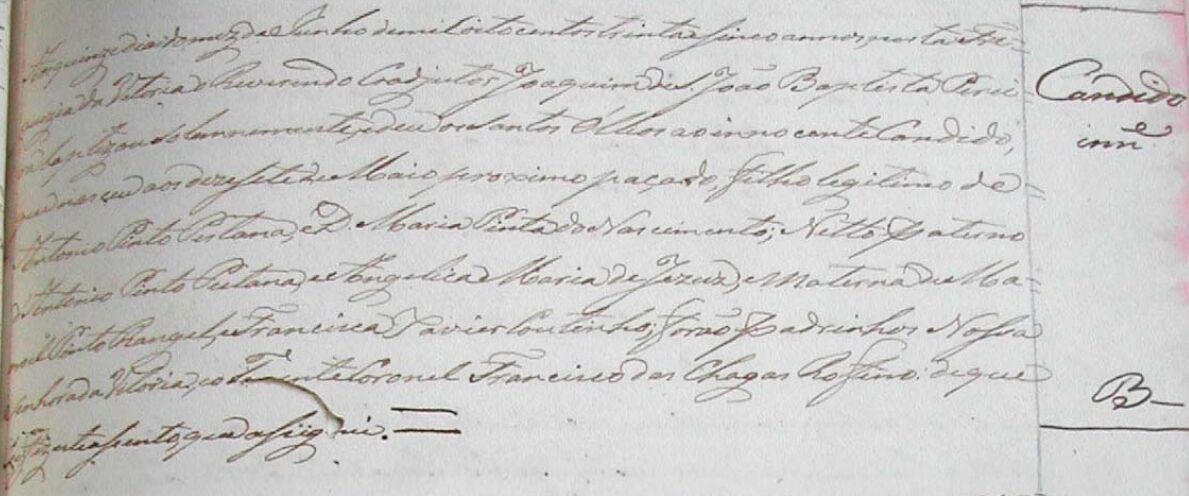 Aos quinze dias do mez de Junho de mil oito centos trinta e sinco annos, nesta Fre-
guezia da Vitoria o Reverendo Coadjutor Joaquim de S. João Baptista
baptizou solemnemente, e deu os Santos Olhos ao innocente Candido,
que nasceu aos dezesete de Maio proximo paçado, filho legitimo de
Antonio Pinto Pestana, e D. Maria Pinta do Nascimento; Netto Paterno
de Antonio Pinto Pestana, e Angelica Maria de Jezuz, e Materna de Ma-
noel Pinto Rangel, e Francisca Xavier Coutinho; forão Padrinhos Nossa
Senhora da Vitoria, e o Tenente Coronel Francisco das Chagas deque
fiz este assento, que assignei.
Candido
inne
B